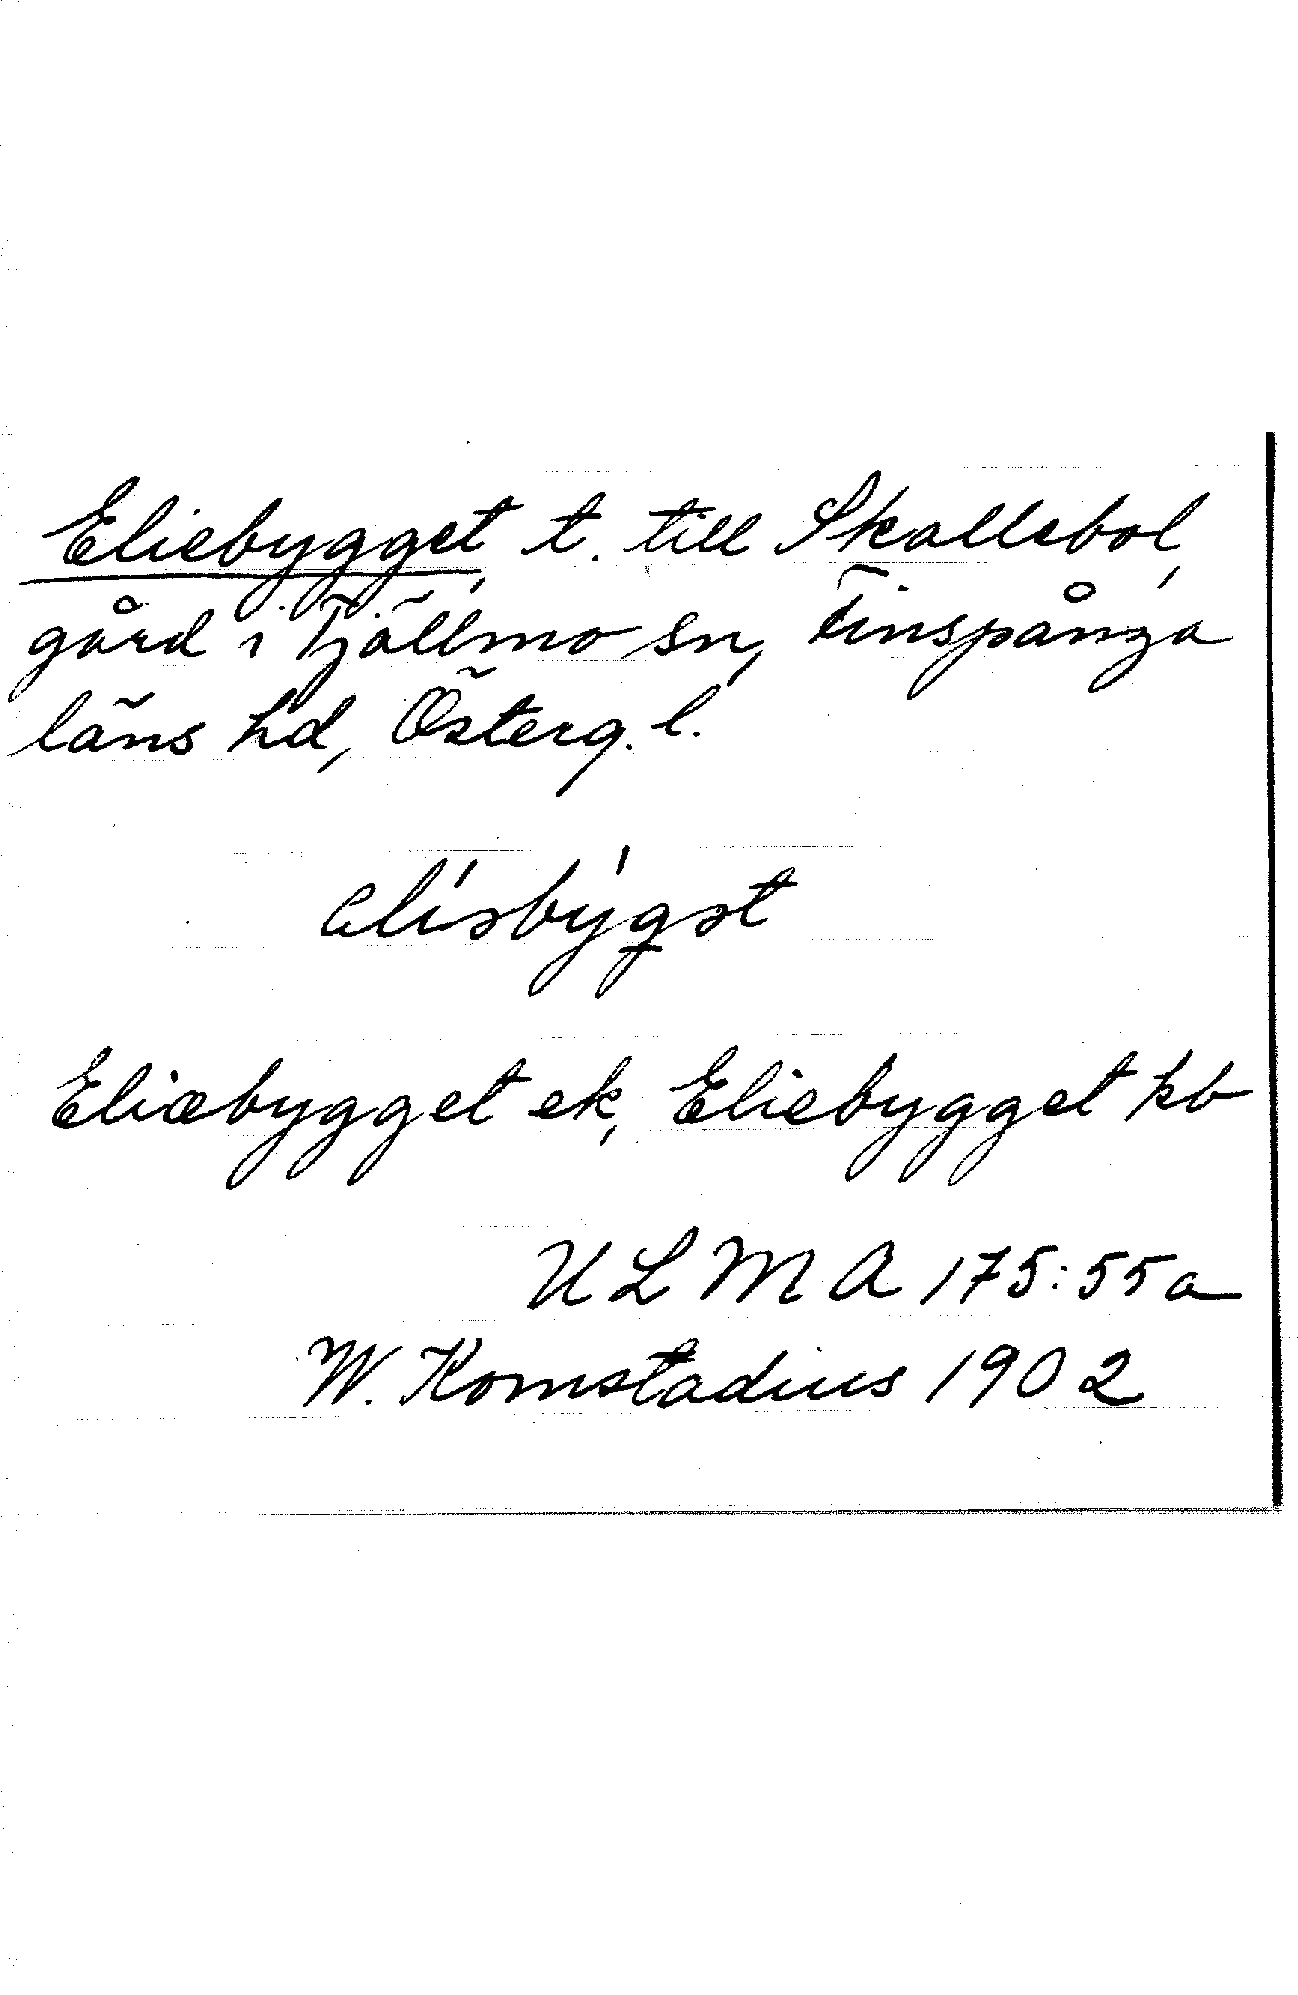 Eliebygget, t. till Skallebol,
gård i Tjällmo sn, Finspånga
läns hd, Österg. l.
Eliæbygget ek, Eliebygget kb
ULMA 175:55a
W. Komstadius 1902